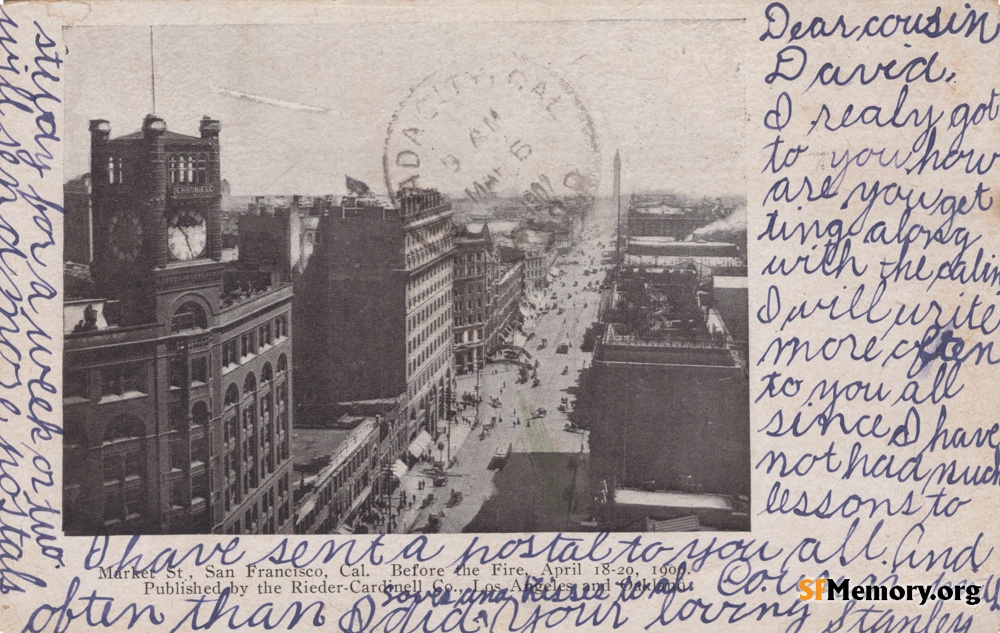 Dear cousin
David,
I realy got
to you how
are you get
ting along
with the
I will write
more often
to you all
since I have
not had much
lessons to
study for a week or two
will send more postals
I have sent a postal to you all. And
often than I did. Your loving
Stanley
Love and kisses to all.
Market St., San Francisco, Cal. Before the Fire, April 18-20, 1906.
Published by the Rieder-Cardinell Co., Los Angeles and Oakland.
CHRONICLE
CITY, CAL.
9 AM
5
1907
SFMemory.org